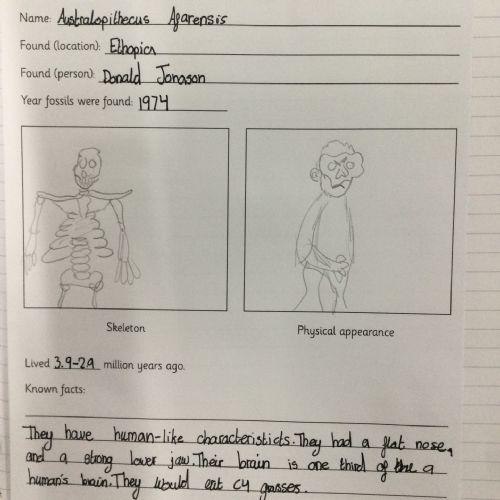 Name: Australopithecus Afarensis
Found (location): Ethopica
Found (person): Donald Jonason
Year fossils were found: 1974
Skeleton
Physical appearance
Lived 3.9-2.9 million years ago.
Known facts:
They have human-like characteristicts. They had a flat nose,
and a strong lower jaw. Their brain is one third of the a
human's brain. They would eat C4 grasses.